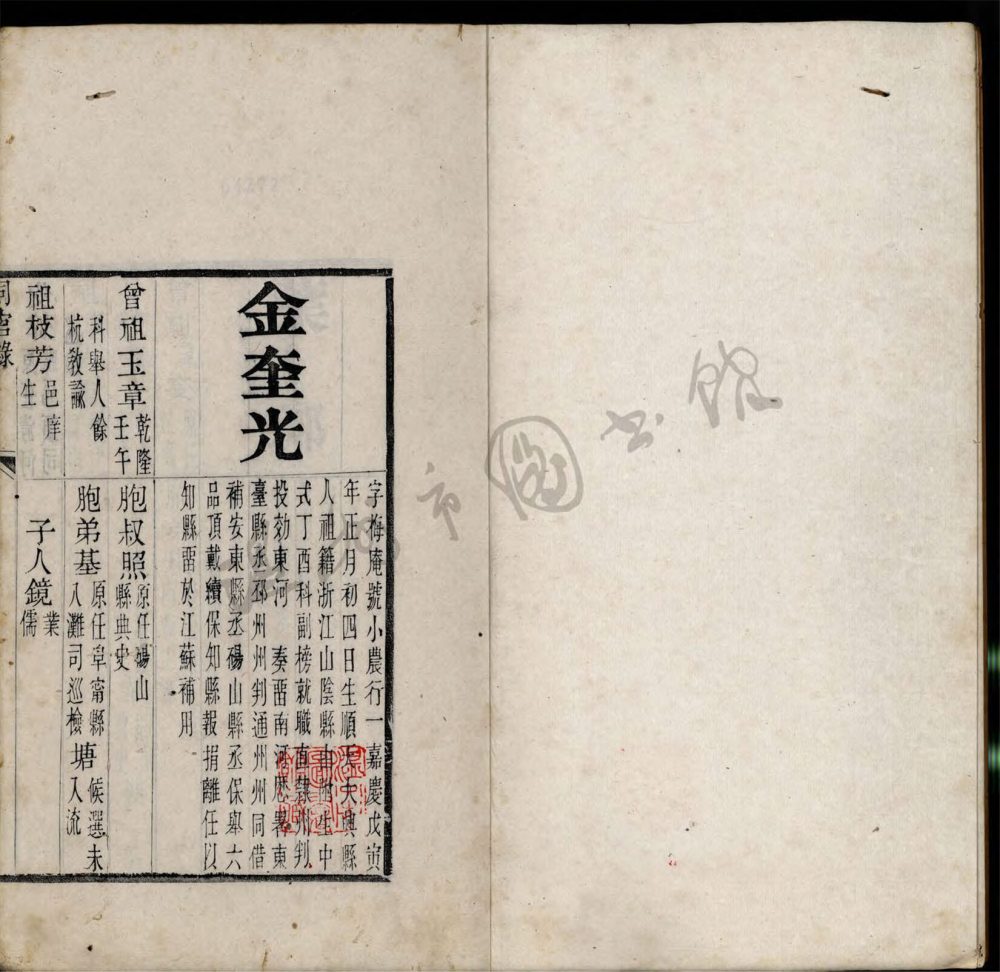 金奎光
字梅庵號小農行一嘉慶戊寅
年正月初四日生順天大興縣
人祖籍浙江山陰縣由附生中
式丁酉科副榜就職直隸州判
投効東河　奏畱南河歷署東
臺縣丞邳州州判通州州同借
補安東縣丞碭山縣丞保舉六
品頂戴續保知縣報捐離任以
知縣畱於江蘇補用
曾祖玉章乾隆
壬午
科舉人餘
杭敎諭
胞叔照原任碭山
縣典史
祖枝芳邑庠
生
胞弟基原任阜甯縣
八灘司巡檢
塘候選未
入流
子人鏡業
儒
同官錄
市圖书館